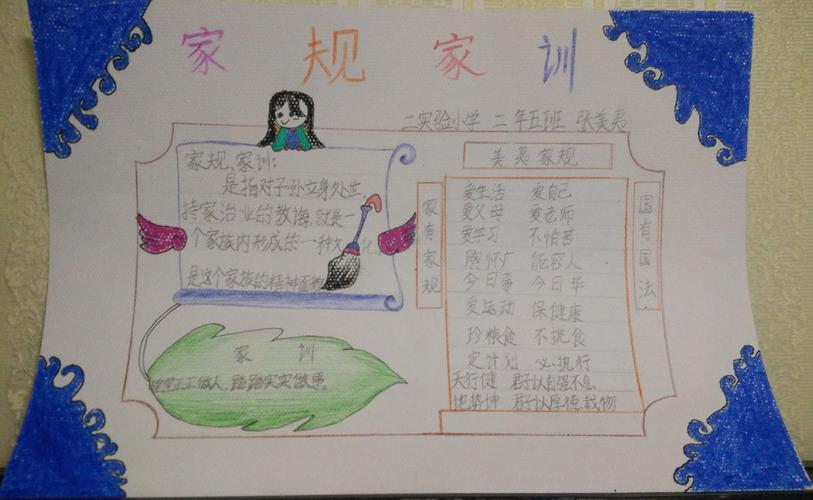 家规家训
二实验小学 二年五班 张美夷
家规、家训：
是指对子孙立身处世、
持家治业的教诲,就是一
个家族内形成的一种文化
是这个家族的精神面貌
家训
堂堂正正做人,踏踏实实做事。
美夷家规
家有家规
爱生活 爱自己
爱父母 爱老师
爱学习 不怕苦
胸怀广 能容人
今日事 今日毕
爱运动 保健康
珍粮食 不挑食
定计划 必执行
天行健 君子以自强不息
地势坤 君子以厚德载物
国有国法